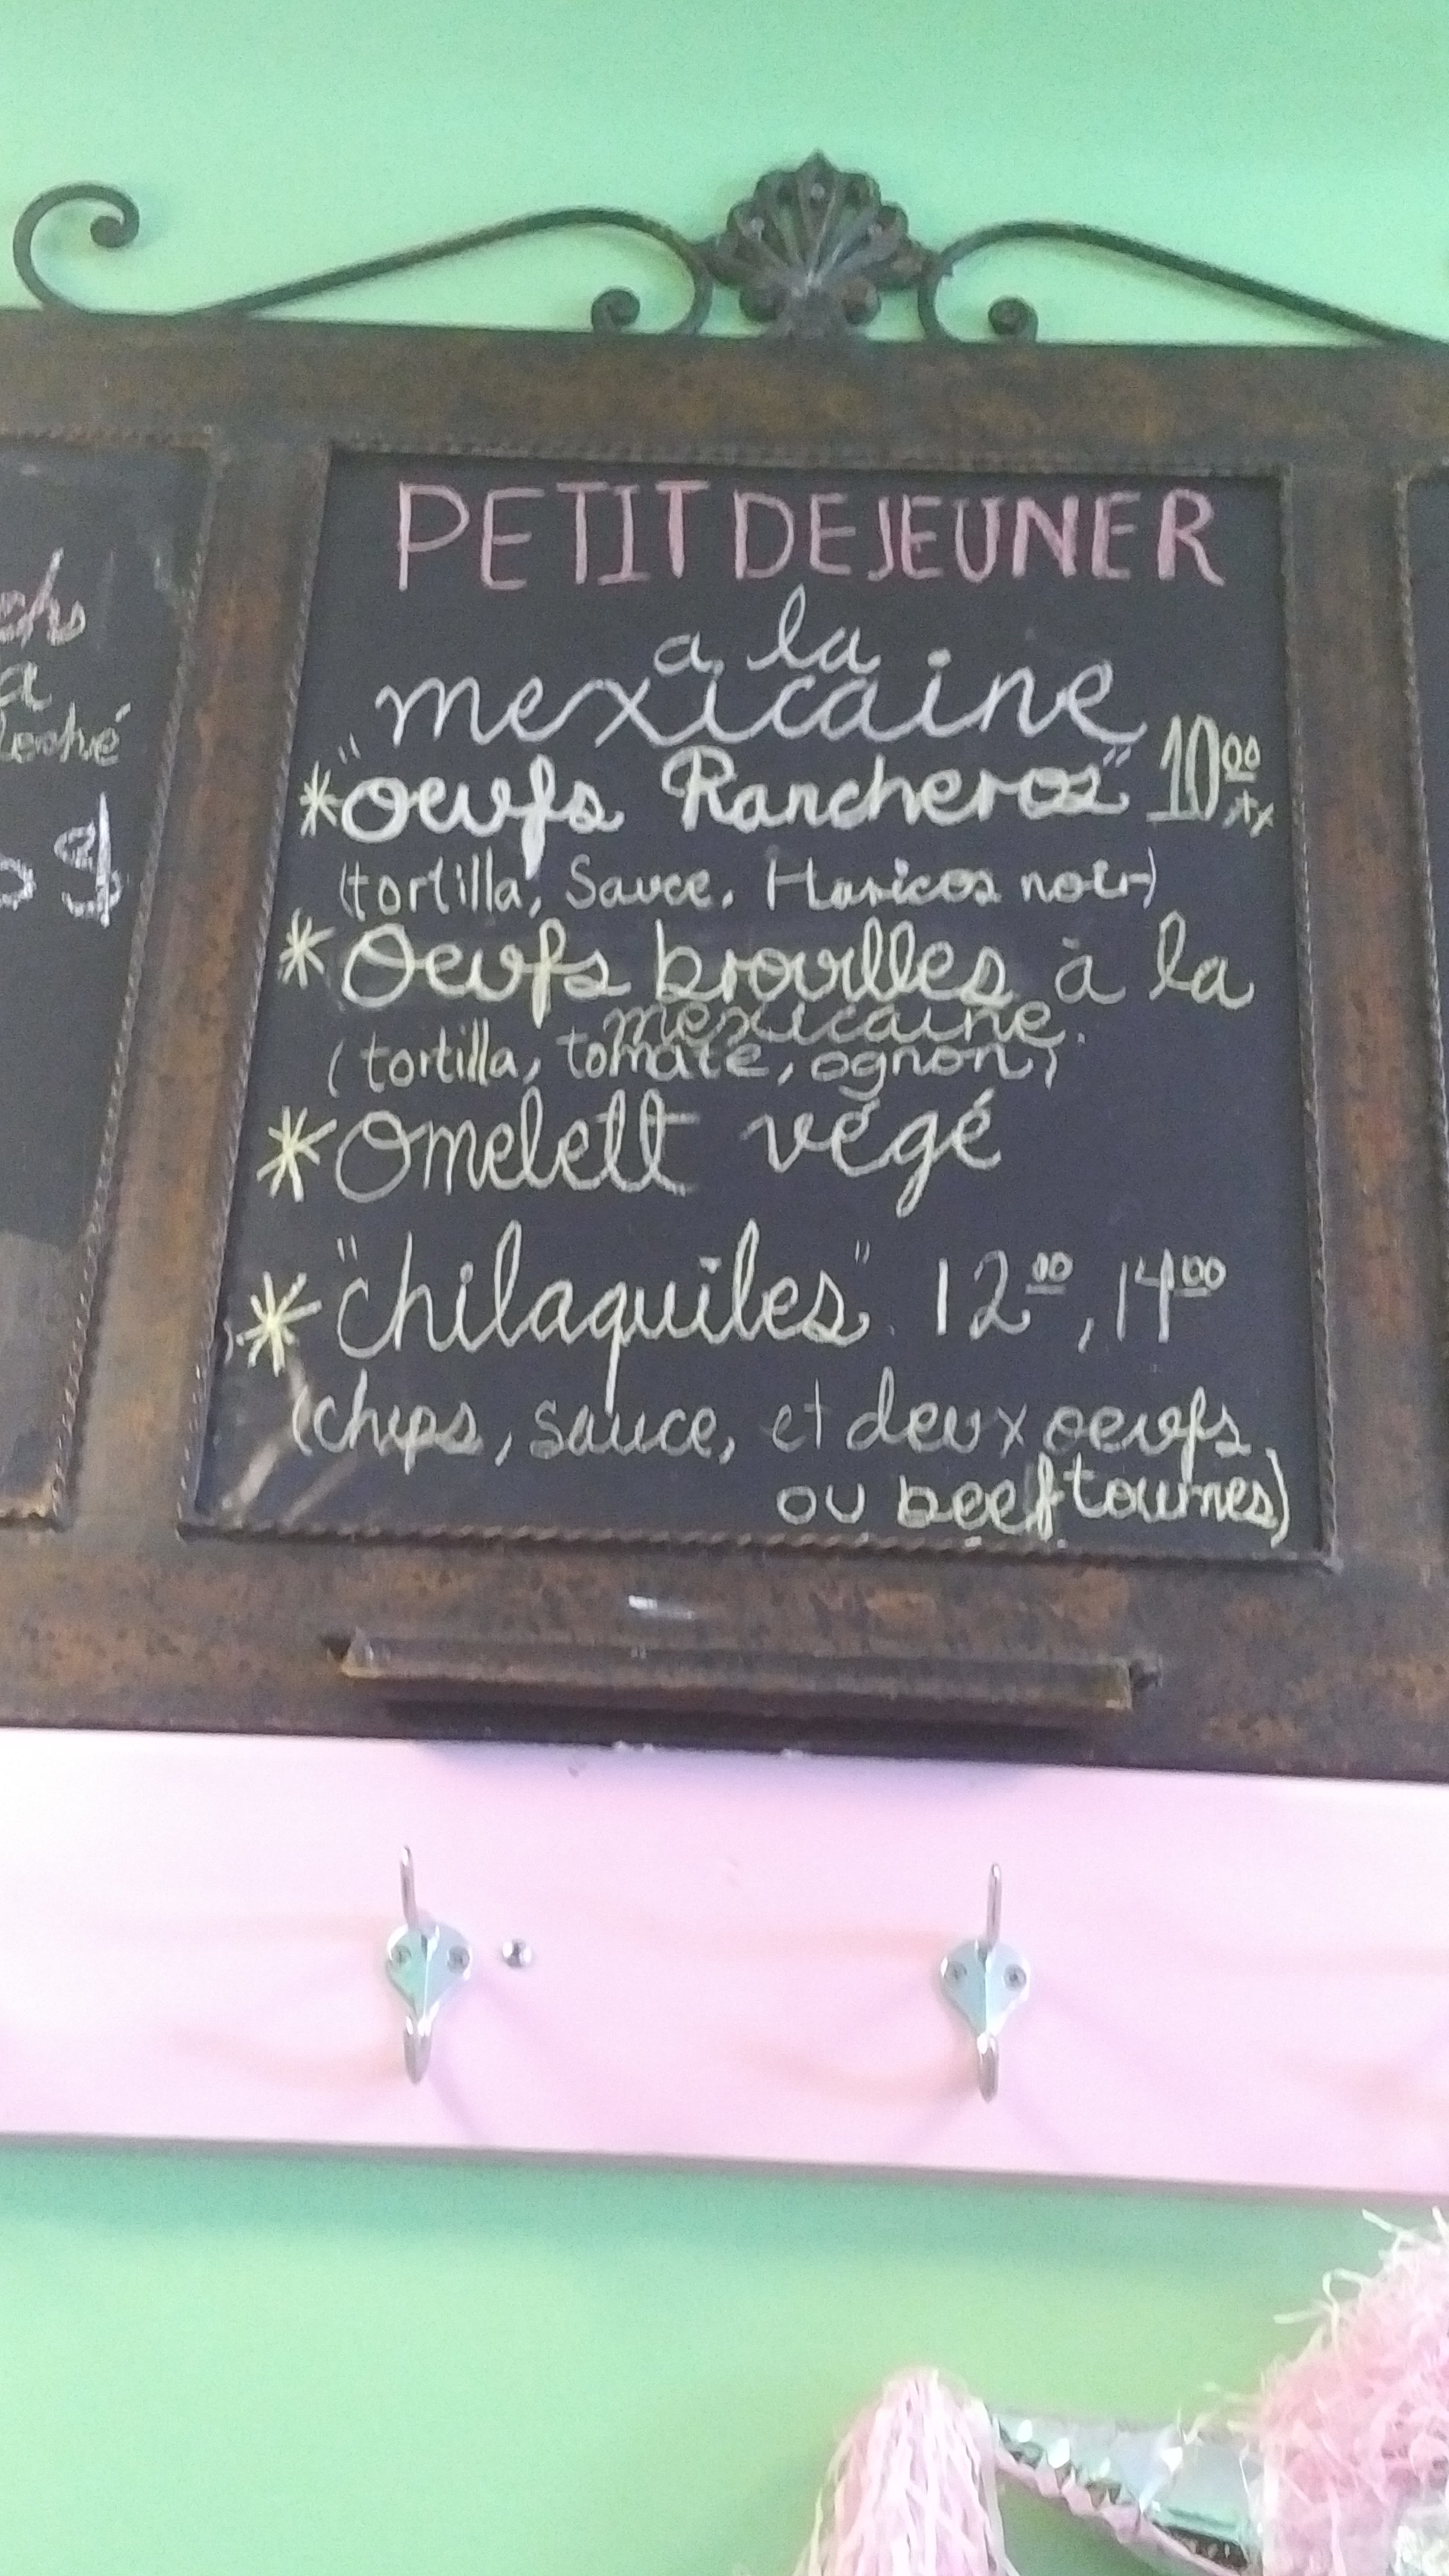 PETIT DEJEUNER
a la
mexicaine
* "oeufs Rancheros" 10.00 +tx
(tortilla, Sauce, Haricos noir)
* Oeufs brouilles à la
mexicaine.
(tortilla, tomate, ognon)
* Omelett végé
* "chilaquiles" 12.00, 14.00
(chips, sauce, et deux oeufs
ou beef tournes)
a
$